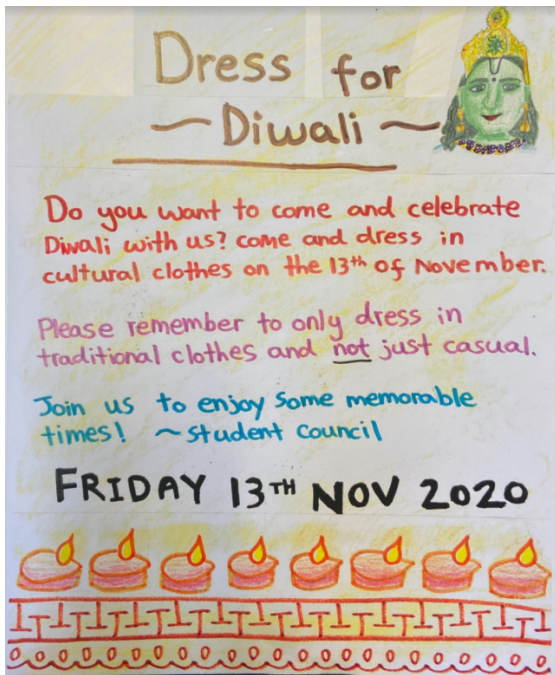 Dress for
~ Diwali ~
Do you want to come and celebrate
Diwali with us? come and dress in
cultural clothes on the 13th of November.
Please remember to only dress in
traditional clothes and not just casual.
Join us to enjoy some memorable
times! ~ Student Council
FRIDAY 13TH NOV 2020